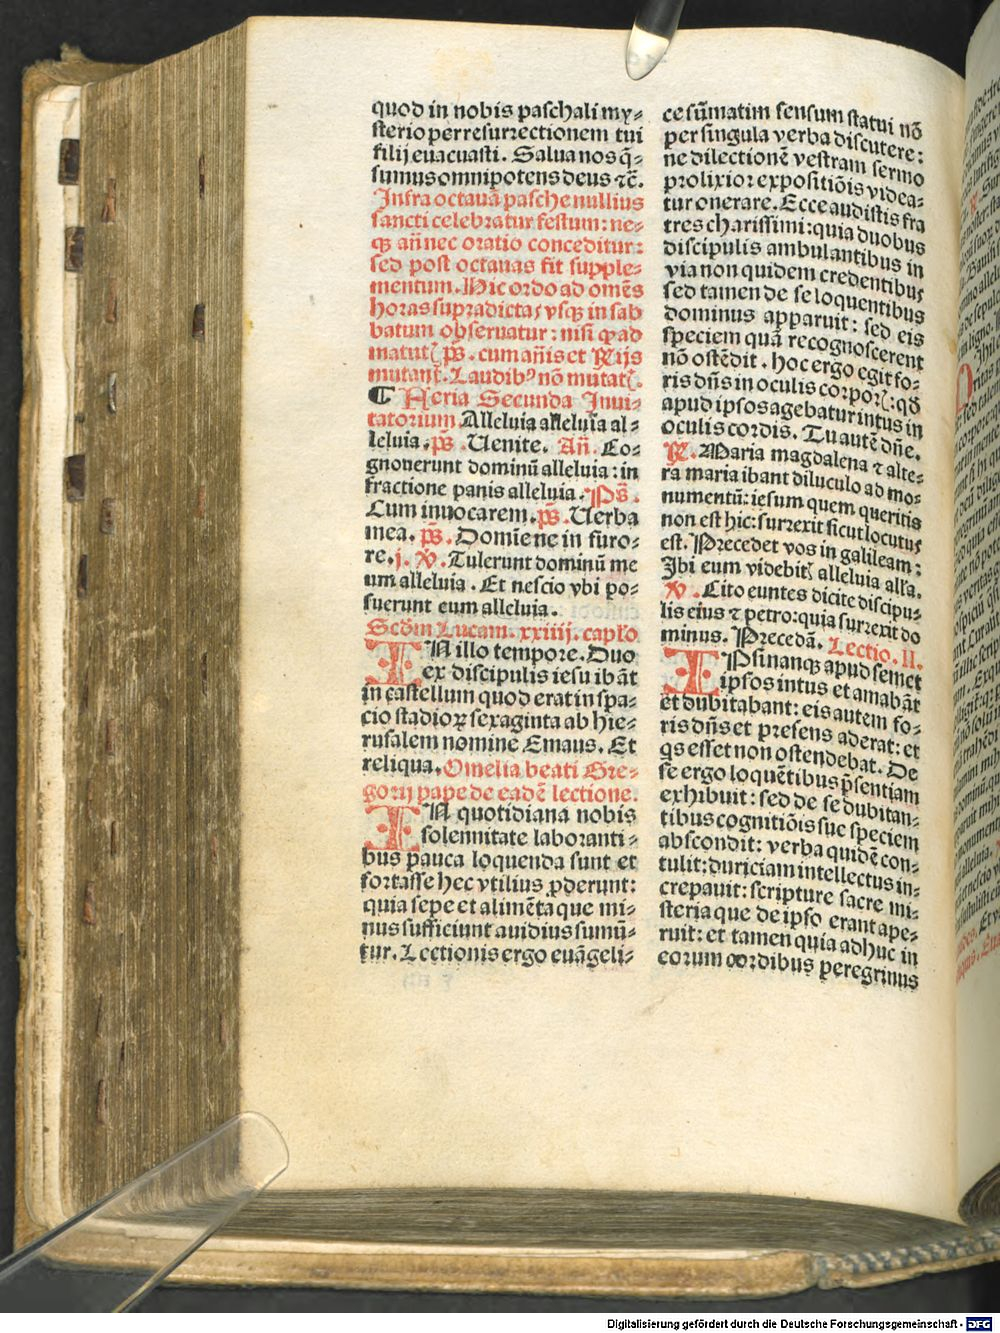 quod in nobis paschali my⸗
sterio per resurrectionem tui
filij euacuasti. Salua nos q̄⸗
sumus omnipotens deus ⁊c̄.
Infra octauā pasche nullius
sancti celebratur festum: ne⸗
qꝫ añ nec oratio conceditur:
sed post octauas fit supple⸗
mentum. Hic ordo ad omēs
horas supradictas vsqꝫ in sab
batum obseruatur: nisi ꝙ ad
matut̄ p̄s. cum añis et R̄ijs
mutant̄. Laudibꝰ nō mutat̄.
¶ Feria Secunda Inui⸗
tatorium Alleluia alleluia al⸗
leluia. p̄s. Uenite. Añ. Co⸗
gnouerunt dominū alleluia: in
fractione panis alleluia. Ps̄.
Cum inuocarem. p̄s. Uerba
mea. p̄s. Domine ne in furo⸗
re. j. V̄. Tulerunt dominū me
um alleluia. Et nescio vbi po⸗
suerunt eum alleluia.
Scd̄m Lucam. xxiiij. caplo
IN illo tempore. Duo
ex discipulis iesu ibāt
in castellum quod erat in spa⸗
cio stadioꝝ sexaginta ab hie⸗
rusalem nomine Emaus. Et
reliqua. Omelia beati Gre⸗
gorij pape de eadē lectione.
IN quotidiana nobis
solennitate laboranti⸗
bus pauca loquenda sunt et
fortasse hec vtilius ꝓderunt:
quia sepe et alimēta que mi⸗
nus sufficiunt auidius sumū⸗
tur. Lectionis ergo euāgeli⸗
ce sūmatim sensum statui nō
per singula verba discutere:
ne dilectionē vestram sermo
prolixior expositiōis videa⸗
tur onerare. Ecce audistis fra
tres charissimi: quia duobus
discipulis ambulantibus in
via non quidem credentibus
sed tamen de se loquentibus
dominus apparuit: sed eis
speciem quā recognoscerent
nō ostēdit. Hoc ergo egit fo⸗
ris dñs in oculis corporꝭ: qđ
apud ipsos agebatur intus in
oculis cordis. Tu autē dñe.
R̄. Maria magdalena ⁊ alte⸗
ra maria ibant diluculo ad mo⸗
numentū: iesum quem queritis
non est hic: surrexit sicut locutus
est. Precedet vos in galileam:
Ibi eum videbitꝭ alleluia alla.
V̄. Cito euntes dicite discipu⸗
lis eius ⁊ petro: quia surrexit do
minus. Precedā. Lectio. II.
IPsi nanqꝫ apud semet
ipsos intus et amabāt
et dubitabant: eis autem fo⸗
ris dñs et presens aderat: et
qs esset non ostendebat. De
se ergo loquētibus p̄sentiam
exhibuit: sed de se dubitan⸗
tibus cognitiōis sue speciem
abscondit: verba quidē con⸗
tulit: duriciam intellectus in⸗
crepauit: scripture sacre mi⸗
steria que de ipso erant ape⸗
ruit: et tamen quia adhuc in
eorum cordibus peregrinus
Digitalisierung gefördert durch die Deutsche Forschungsgemeinschaft - DFG